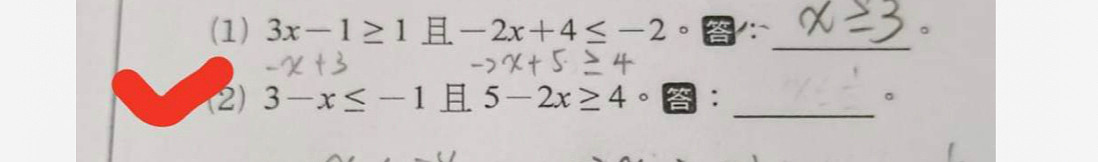 (1) 3x－1≥1 且－2x+4≤－2。答：x≥3。
-x+3 -2x+5≥4
(2) 3－x≤－1 且 5－2x≥4。答：＿＿＿。